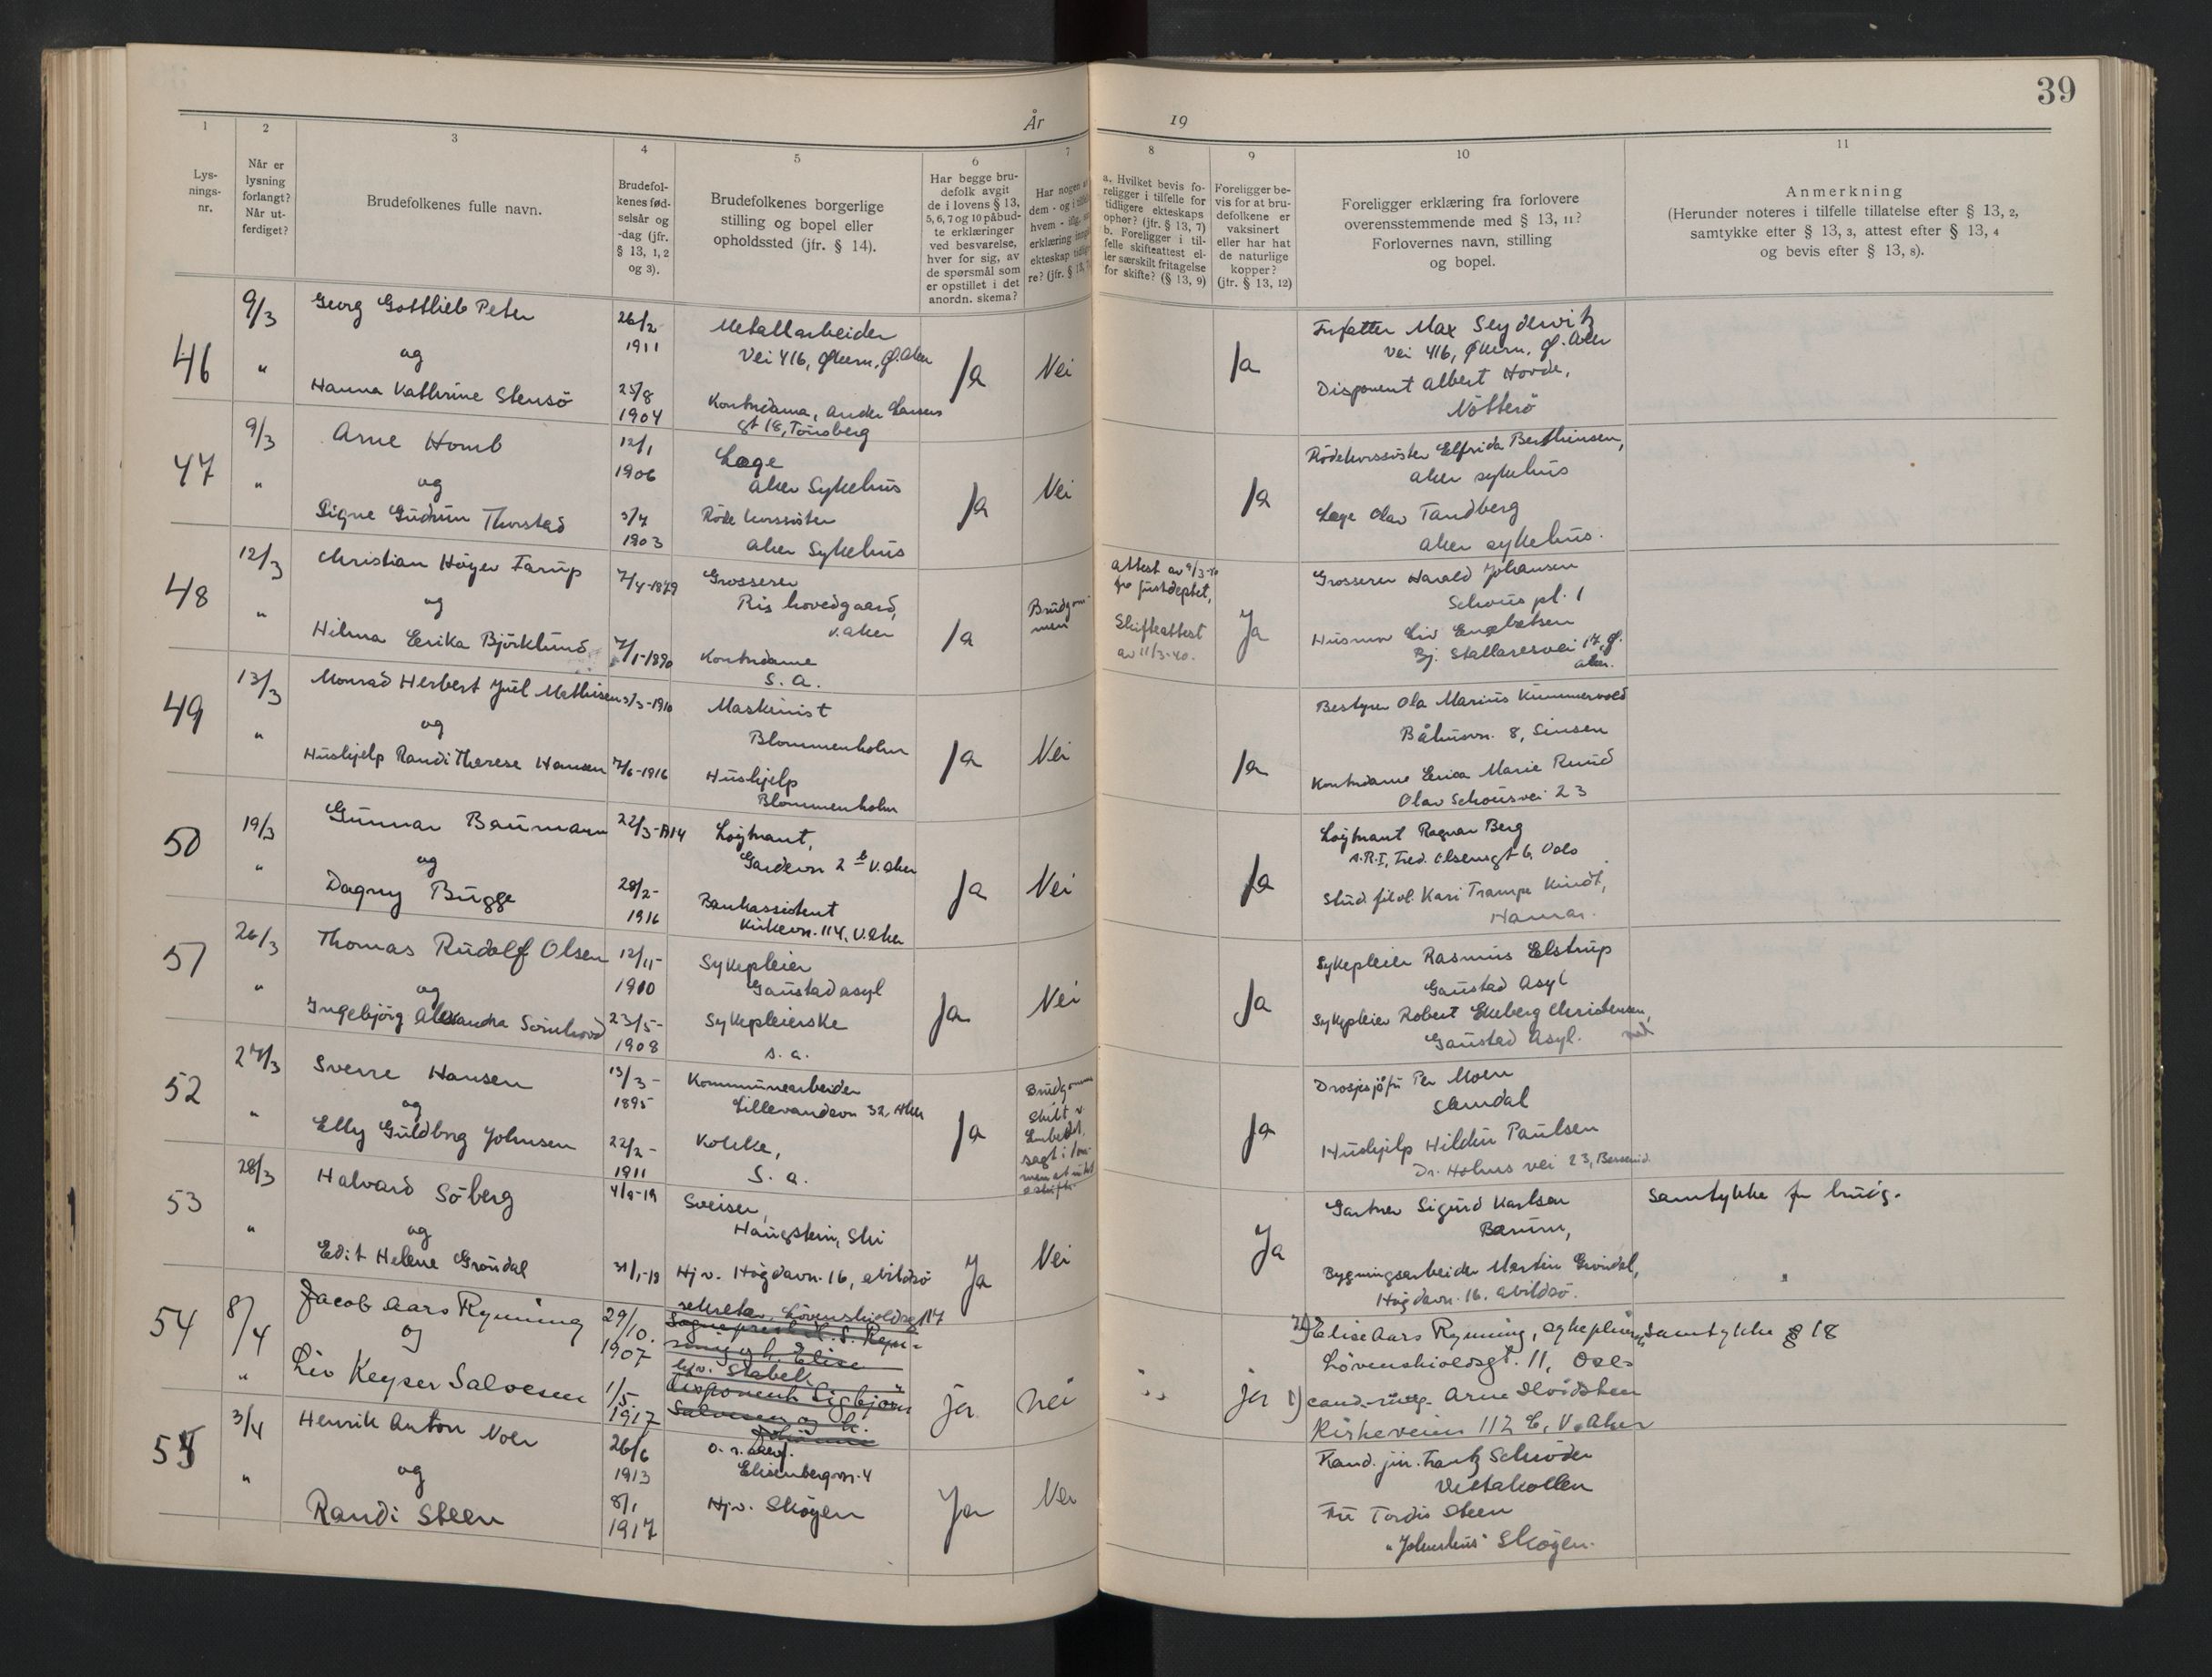 39
År 19
1
Lys-
nings-
nr.
2
Når er
lysning
forlangt?
Når ut-
ferdiget?
3
Brudefolkenes fulle navn.
4
Brudefol-
kenes fød-
selsår og
-dag (jfr.
§ 13, 1, 2
og 3).
5
Brudefolkenes borgerlige
stilling og bopel eller
opholdssted (jfr. § 14).
6
Har begge bru-
defolk avgit
de i lovens § 13,
5, 6, 7 og 10 påbud-
te erklæringer
ved besvarelse,
hver for sig, av
de spørsmål som
er opstillet i det
anordn. skema?
7
Har nogen av
dem - og i tilfelle
hvem -
erklæring
ekteskap tidlige-
re? (jfr. § 13,
8
a. Hvilket bevis fo-
religger i tilfelle for
tidligere ekteskaps
ophør? (jfr. § 13, 7)
b. Foreligger i til-
felle skifteattest el-
ler særskilt fritagelse
for skifte? (§ 13, 9)
9
Foreligger be-
vis for at bru-
defolkene er
vaksinert
eller har hat
de naturlige
kopper?
(jfr. § 13, 12)
10
Foreligger erklæring fra forlovere
overensstemmende med § 13, 11?
Forlovernes navn, stilling
og bopel.
11
Anmerkning
(Herunder noteres i tilfelle tillatelse efter § 13, 2,
samtykke efter § 13, 3, attest efter § 13, 4
og bevis efter § 13, 8).
46
9/3
"
Georg Gottlieb Peter
og
Hanna Kathrine Stensö
26/2
1911
25/8
1904
Metallarbeider
Vei 416, Økern, Ø. Aker
Kontordame, Anders Larsens
gt 18, Tönsberg
Ja
Nei
Ja
Max Seydewitz
Vei 416, Økern, Ø. Aker
Disponent Albert Hovde,
Nötterö
47
9/3
"
Arne Homb
og
Signe Gudrun Thorstad
12/1
1906
3/7
1903
Læge
Aker Sykehus
Röde korssöster
Aker Sykehus
Ja
Nei
Ja
Rödekorssöster Elfrida Berthinsen,
Aker sykehus
Læge Olav Tandberg
Aker sykehus.
48
12/3
"
Christian Höyer Farup
og
Hilma Erika Björklund
7/4-1879
7/1-1890
Grosserer
Ris hovedgaard,
V. Aker
Kontordame
S. a.
Ja
Brudgom-
men
Attest av 9/3-40
fra justdeptet,
Skifteattest
av 11/3-40.
Ja
Grosserer Harald Johansen
Schous pl. 1
Husmor Liv Engebetsen
Bj. Stallaresvei 17, Ø.
Aker.
49
13/3
"
Monrad Herbert Juel Mathisen
og
Hushjelp Randi Therese Hansen
3/3-1910
7/6-1916
Maskinist
Blommenholm
Hushjelp
Blommenholm
Ja
Nei
Ja
Bestyrer Ola Marius Kummervold
Båhusvn. 8, Sinsen
Kontordame Erica Marie Ruud
Olav Schousvei 23
50
19/3
"
Gunnar Baumann
og
Dagny Bugge
22/3-1914
28/2-
1916
Löjtnant,
Gardevn 2 b V. Aker
Bankassistent
Kirkevn. 114, V. Aker
Ja
Nei
Ja
Löjtnant Ragnar Berg
A.R.I, Fred. Olsensgt 6, Oslo
Stud. filol. Kari Trampe Kindt,
Hamar.
51
26/3
"
Thomas Rudolf Olsen
og
Ingebjörg Alexandra
12/11-
1900
23/5-
1908
Sykepleier
Gaustad asyl
Sykepleierske
s. a.
Ja
Nei
Ja
Sykepleier Rasmus Elstrup
Gaustad Asyl
Sykepleier Robert Ekeberg Christensen,
Gaustad Asyl.
52
27/3
"
Sverre Hansen
og
Elly Guldborg Johnsen
13/3-
1895
22/2-
1911
Kommunearbeider
Lillevandsvn 32, Aker
Kokke,
S. a.
Ja
Skilt v.
Ja
Drosjesjåfør Per Moen
Slemdal
Hushjelp Hildur Paulsen
Dr. Holms vei 23,
53
28/3
"
Halvard Söberg
og
Edit Helene Gröndal
4/8-19
31/1-19
Sveiser,
Haugstein, Ski
Hjv. Högdavn. 16, Abildsö
Ja
Nei
Ja
Gartner Sigurd Karlsen
Bærum,
Bygningsarbeider Martin Gröndal,
Högdavn. 16. Abildsö.
Samtykke for brudg.
54
8/4
"
Jacob Aars Rynning
og
Liv Keyser Salvesen
29/10.
1907
1/5.
1917
sekretær, Lövenskioldsgt 17
Sogneprest
h. Elise
Stabell
disponent Sigbjörn
Salvesen og h.
ja
nei
ja
2) Elise Aars Rynning, sykepleierske
Lövenskioldsgt. 11, Oslo
1) cand. mag. Arne
Kirkeveien 112 E, V. Aker
Samtykke § 18
55
3/4
"
Henrik Anton Noer
og
Randi Steen
26/6
1913
8/1
1917
O. r. sakf.
Elisenbergvn. 4
Hjv. Sköyen
Ja
Nei
Kand. jur. Frantz Schröder
Vettakollen
Fru Tordis Steen
"Johnshus" Sköyen.